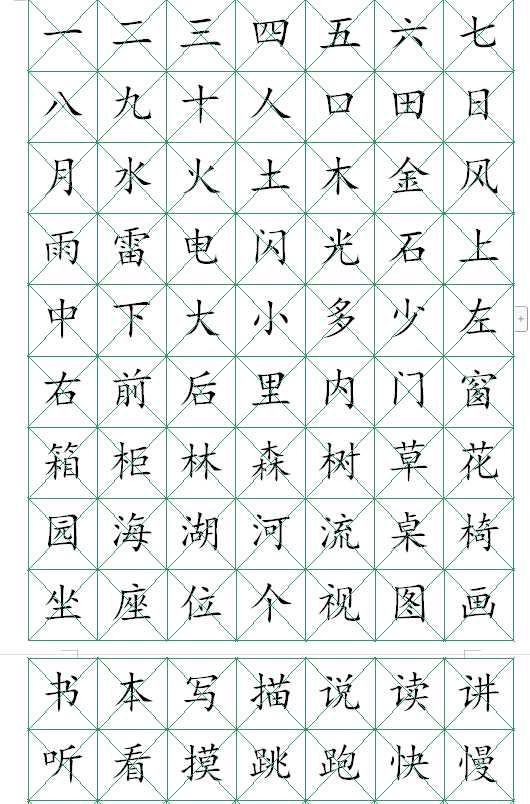 一二三四五六七
八九十人口田日
月水火土木金风
雨雷电闪光石上
中下大小多少左
右前后里内门窗
箱柜林森树草花
园海湖河流桌椅
坐座位个视图画
书本写描说读讲
听看摸跳跑快慢